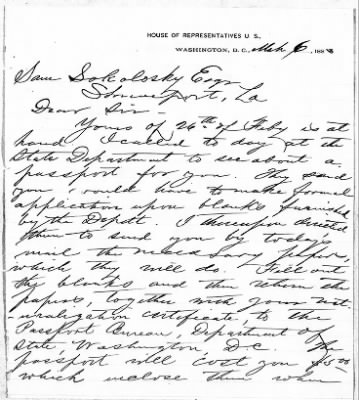 HOUSE OF REPRESENTATIVES U. S.,
WASHINGTON, D. C., Mch 6, 188
Sam Sokolosky Esqr
Shreveport, La
Dear Sir-
Yours of 26th of Feby is at
hand I called to day at the
State Department to see about a
passport for you. They said
you would have to make formal
application upon blanks furnished
by the Dept. I thereupon directed
them to send you by todays
mail the necessary papers,
which they will do. Fill out
the blanks and then return the
papers, together with your nat-
uralization certificate to the
Passport Bureau, Department of
State, Washington D.C. The
passport will cost you $5.00
which inclose them when